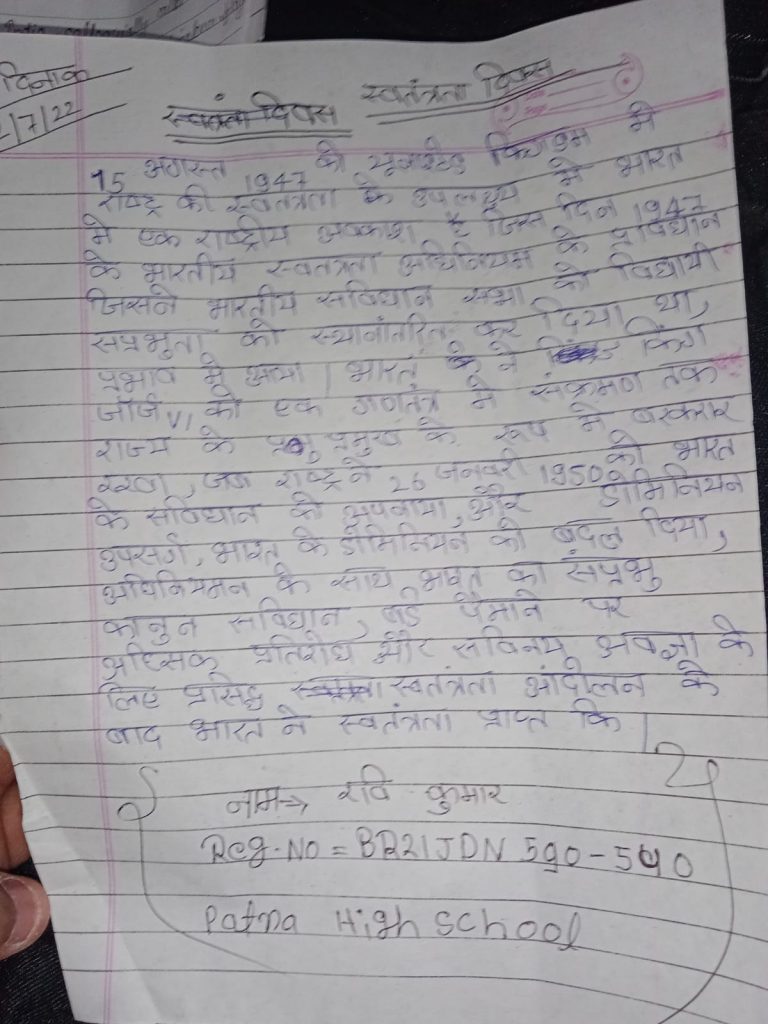 दिनांक
/7/22
स्वतंत्रता दिवस स्वतंत्रता दिवस
15 अगस्त 1947 को यूनाइटेड किंगडम से
राष्ट्र की स्वतंत्रता के उपलक्ष्य में भारत
में एक राष्ट्रीय अवकाश है जिस दिन 1947
के भारतीय स्वतंत्रता अधिनियम के प्रावधान
जिसने भारतीय संविधान सभा को विधायी
संप्रभुता को स्थानांतरित कर दिया था,
प्रभाव में आया। भारत ने किंग
जॉर्ज VI को एक गणतंत्र में संक्रमण तक
राज्य के प्रमुख के रूप में बरकरार
रखा, जब राष्ट्र ने 26 जनवरी 1950 को भारत
के संविधान को अपनाया, और डोमिनियन
उपसर्ग, भारत के डोमिनियन को बदल दिया,
अधिनियमन के साथ भारत का संप्रभु
कानुन संविधान, बडे पैमाने पर
अहिंसक प्रतिरोध और सविनय अवज्ञा के
लिए प्रसिद्ध स्वतंत्रता आंदोलन के
बाद भारत ने स्वतंत्रता प्राप्त कि।
नाम→ रवि कुमार
Reg-No = BR21JDN 590-540
Patna High School